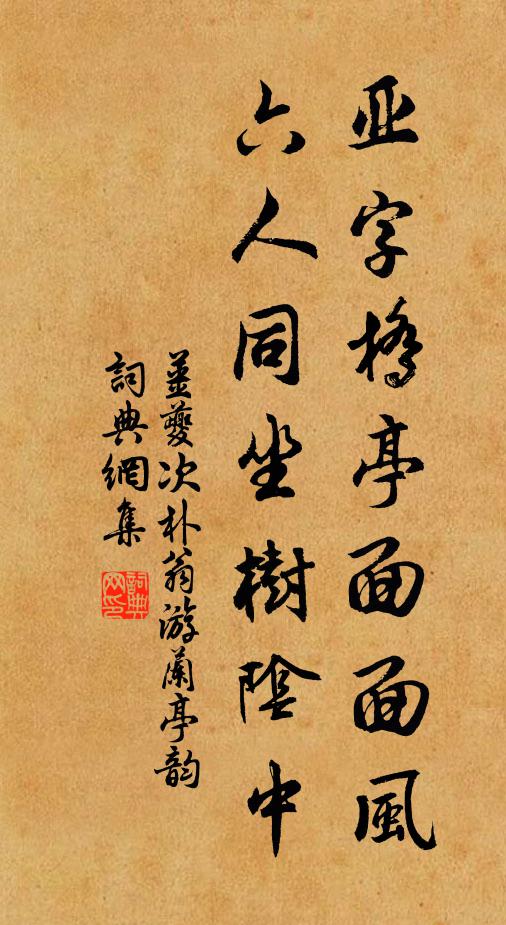 亚字橋亭面面風
六人同坐樹陰中
姜夔次朴翁游蘭亭韵
詞典網集
詞典網印